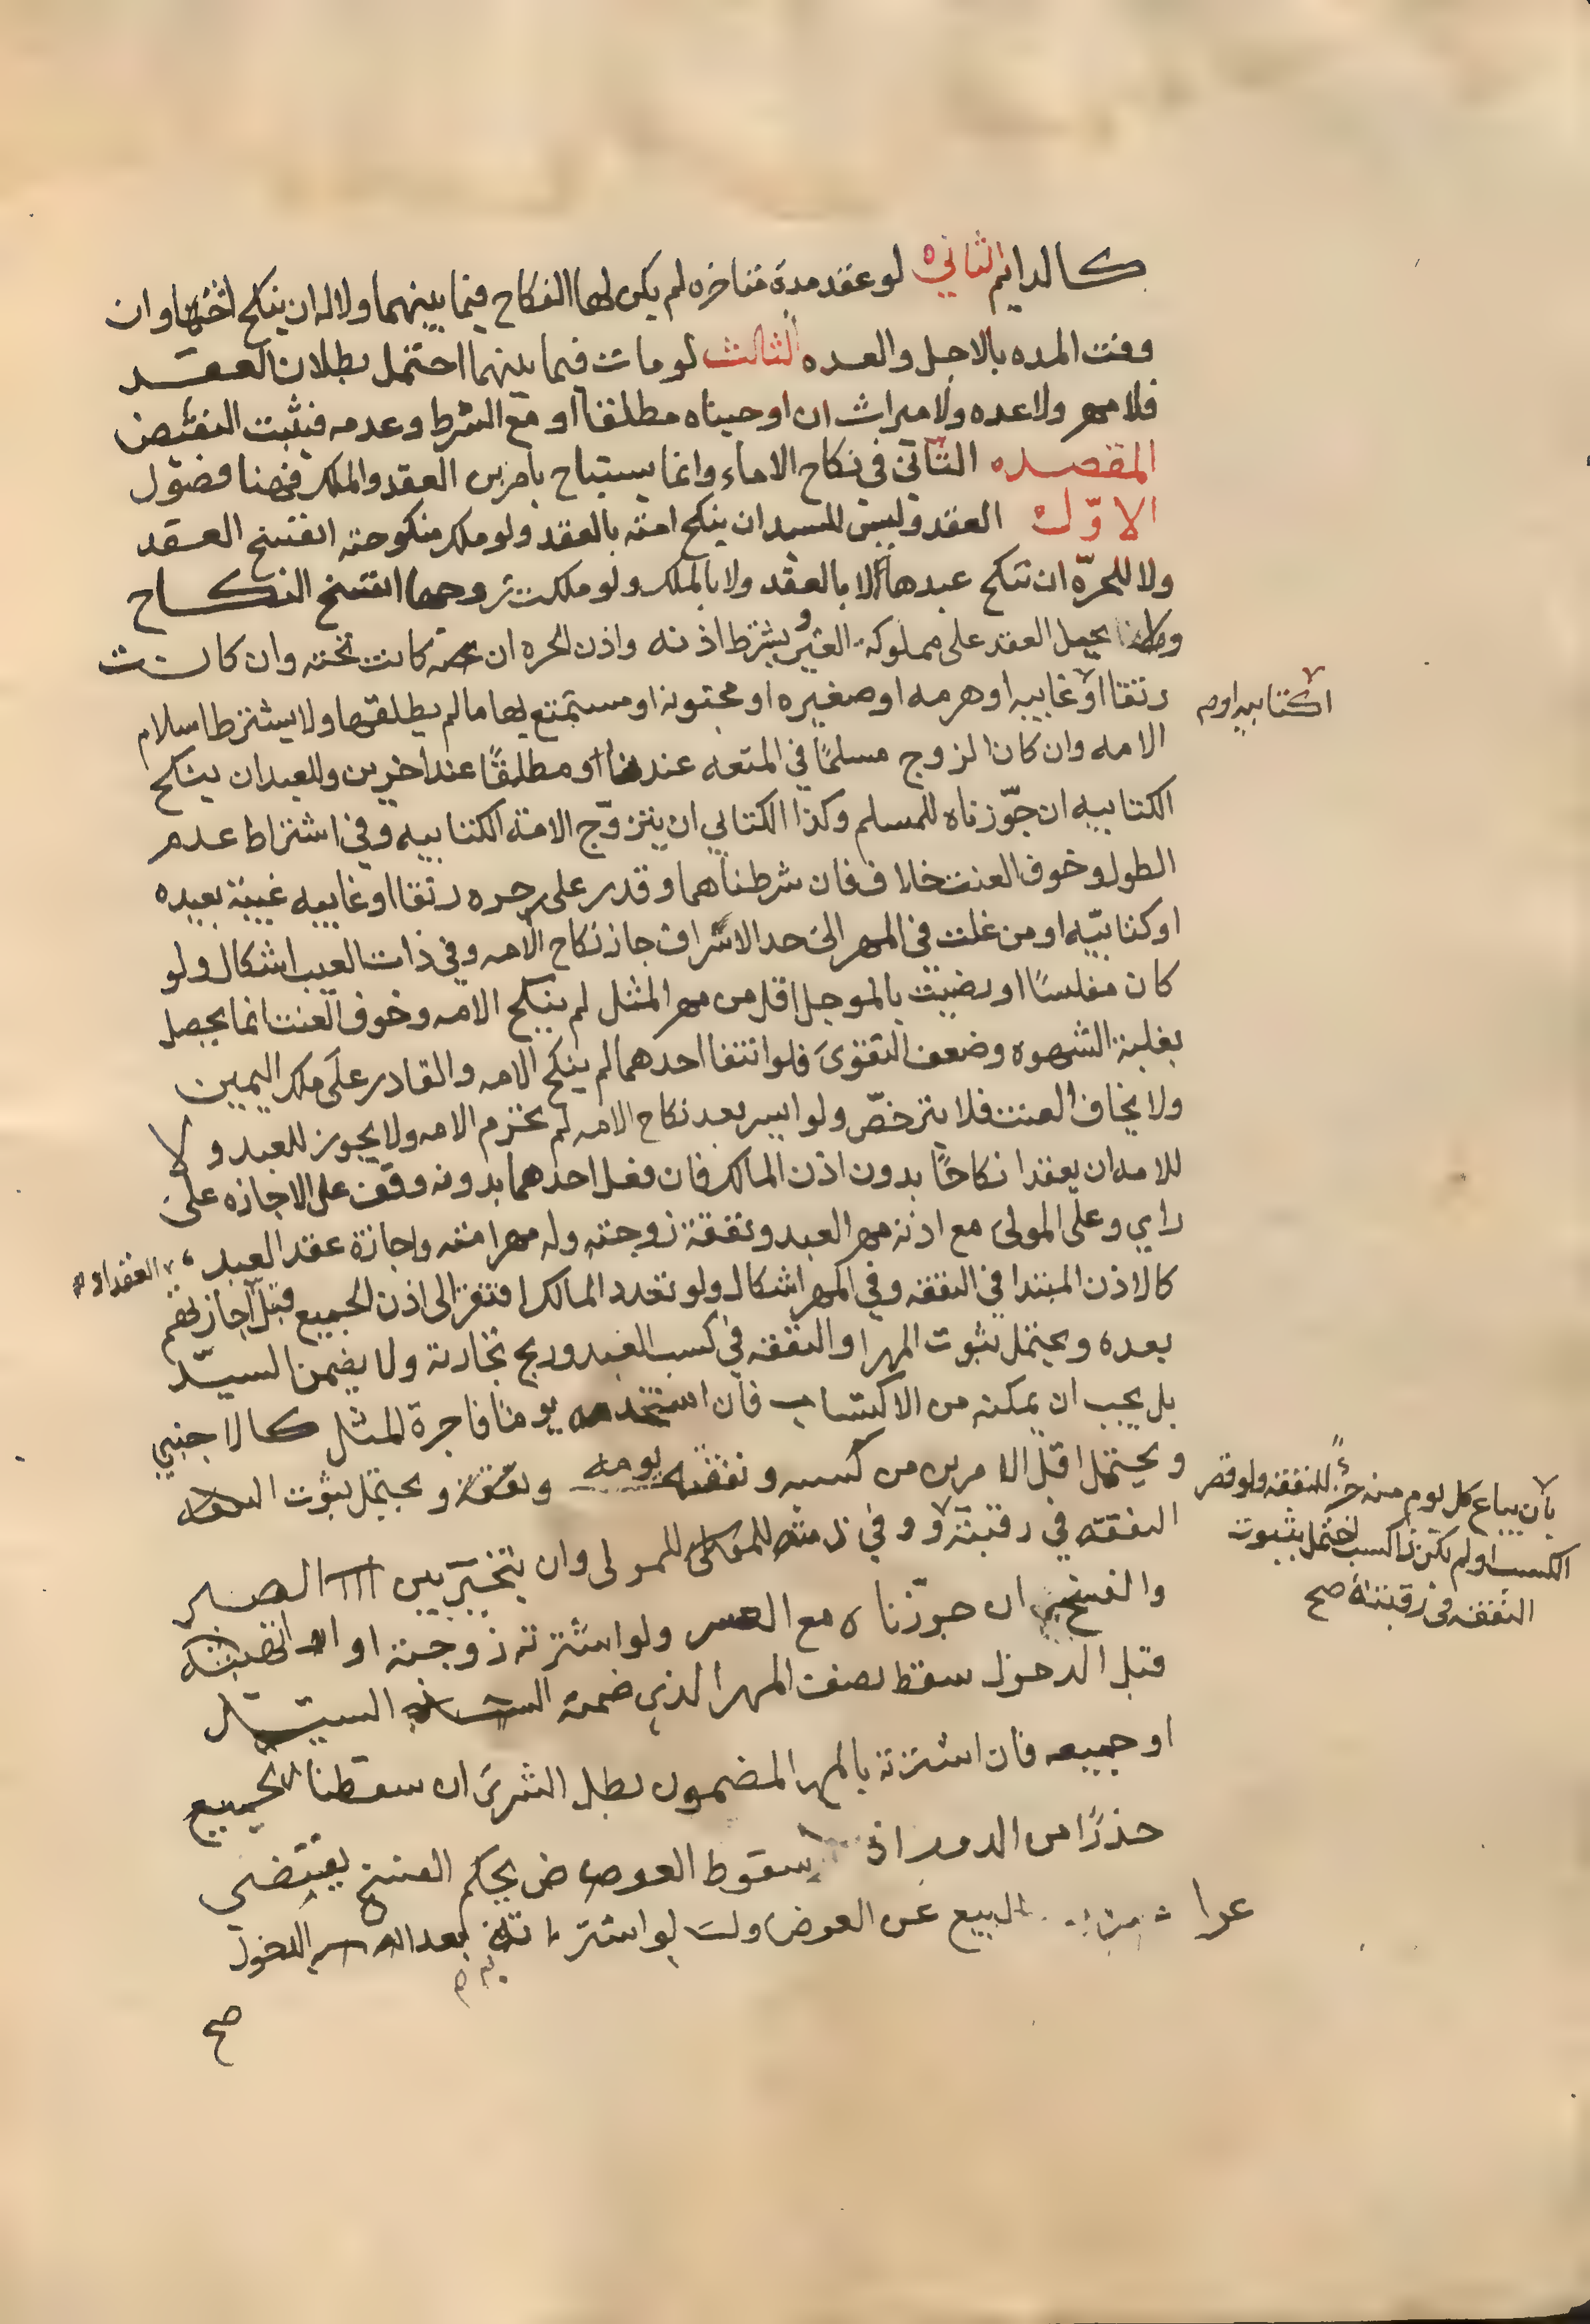 كالدايم الثاني لو عقد مدة متاخره لم يكن لها النكاح فيما بينهما ولا له ان ينكح اختها وان
وفت المده بالاجل والعده الثالث لو مات فيما بينهما احتمل بطلان العقد
فلا مهر ولا عده ولا ميراث ان اوجبناه مطلقا او مع الشرط وعدمه فيثبت النقيض
المقصده الثاني في نكاح الاماء وانما يستباح بامرين العقد والملك فهنا فصول
الاوّل العقد وليس للسيد ان ينكح امته بالعقد ولو ملك منكوحته انفسخ العقد
ولا للحرّة ان تنكح عبدها لا بالعقد ولا بالملك ولو ملكت زوجها انفسخ النكاح
وانما يحل العقد على مملوكة الغير ويشترط اذنه واذن الحره ان كانت تحته وان كانت
رتقا او غايبه او هرمه او صغيره او مجنونه او مستمتع بها ما لم يطلقها ولا يشترط اسلام
او كتابيه او م
الامه وان كان الزوج مسلمًا في المتعه عندنا او مطلقًا عند اخرين وللعبد ان ينكح
الكتابيه ان جوّزناه للمسلم وكذا الكتابي ان يتزوّج الامة الكتابيه وفي اشتراط عدم
الطول وخوف العنت خلاف فان شرطناهما وقدر على حره رتقا او غايبه غيبة بعيده
او كتابيّه او من غلت في المهر الى حد الاسراف جاز نكاح الامه وفي ذات العيب اشكال ولو
كان مفلسًا او رضيت بالموجل اقل من مهر المثل لم ينكح الامه وخوف العنت انما يحصل
بغلبة الشهوه وضعف التقوى فلو انتفا احدهما لم ينكح الامه والقادر على ملك اليمين
ولا يخاف العنت فلا يترخصّ ولو ايسر بعد نكاح الامه لم تحرم الامه ولا يجوز للعبد ولا
للامه ان يعقدا نكاحًا بدون اذن المالك فان فعل احدهما بدونه وقف على الاجازه على
راي وعلى المولى مع اذنه مهر العبد ونفقة زوجته وله مهر امته واجازة عقد العبد
العقد او م
كالاذن المبتدا في النفقه وفي المهر اشكال ولو تعدد المالك افتقر الى اذن الجميع قبل
بعده ويحتمل ثبوت المهر او النفقه في كسب العبد وربح تجارته ولا يضمن السيّد
بل يجب ان يمكنه من الاكتساب فان استخدمه يومًا فاجرة المثل كالاجنبي
ويحتمل اقل الامرين من كسبه ونفقته يومه ونفقة ويحتمل ثبوت
بأن يباع كل يوم منه جزءً للنفقه ولو قصر
الكسب او لم يكن ذا كسب احتمل ثبوت
النفقه في رقبته صح
النفقه في رقبته وفي ذمته للمولى وان يتخير بين الصبر
والفسخ ان جوّزناه مع العسر ولو اشترته زوجته او
قبل الدخول سقط نصف المهر الذي ضمنه السيّد
او جميعه فان اشترته بالمهر المضمون بطل الشرى ان سقطنا الجميع
حذرًا من الدور اذ سقوط العوض بحكم الفسخ يقتضي
عرا البيع عن العوض ولو اشترته بعد الدخول
صح